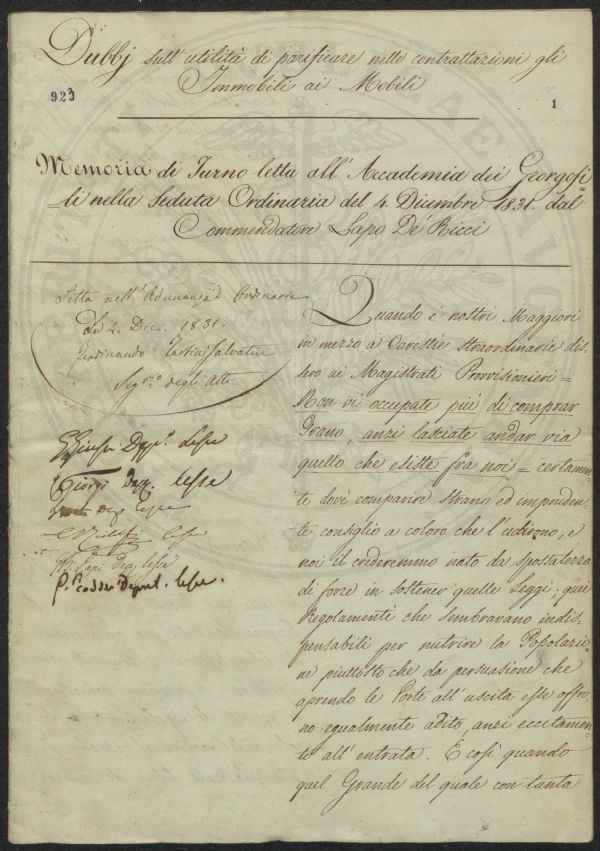 Dubbj sull'utilità di parificare nelle contrattazioni gli
Immobili ai Mobili
923
1
Memoria di Turno letta all'Accademia dei Georgofi=
li nella Seduta Ordinaria del 4. Dicembre 1831. dal
Commendatore Lapo De' Ricci
Letta nell'Adunanza Ordinaria
del 4. Dec. 1831.
Ferdinando Tartini Salvatici
Seg.rio degli Atti
Dep. lesse
Giorgj Dep. lesse
lesse
Dep. lesse
Deput. lesse.
Quando i nostri Maggiori
in mezzo a Carestie straordinarie dis=
sero ai Magistrati Provvisionieri =
Non vi occupate più di comprar
Grano, anzi lasciate andar via
quello che esiste fra noi = certamen=
te dovè comparire strano ed impruden=
te consiglio a coloro che l'udirono, e
noi il crederemmo nato da spossatezza
di forze in sostener quelle Leggi, quei
Regolamenti che sembravano indis=
pensabili per nutrire la Popolazio=
ne piuttosto che da persuasione che
aprendo le Porte all'uscita esse offro=
no egualmente adito, anzi eccitamen=
to all'entrata. E così quando
quel Grande del quale con tanta